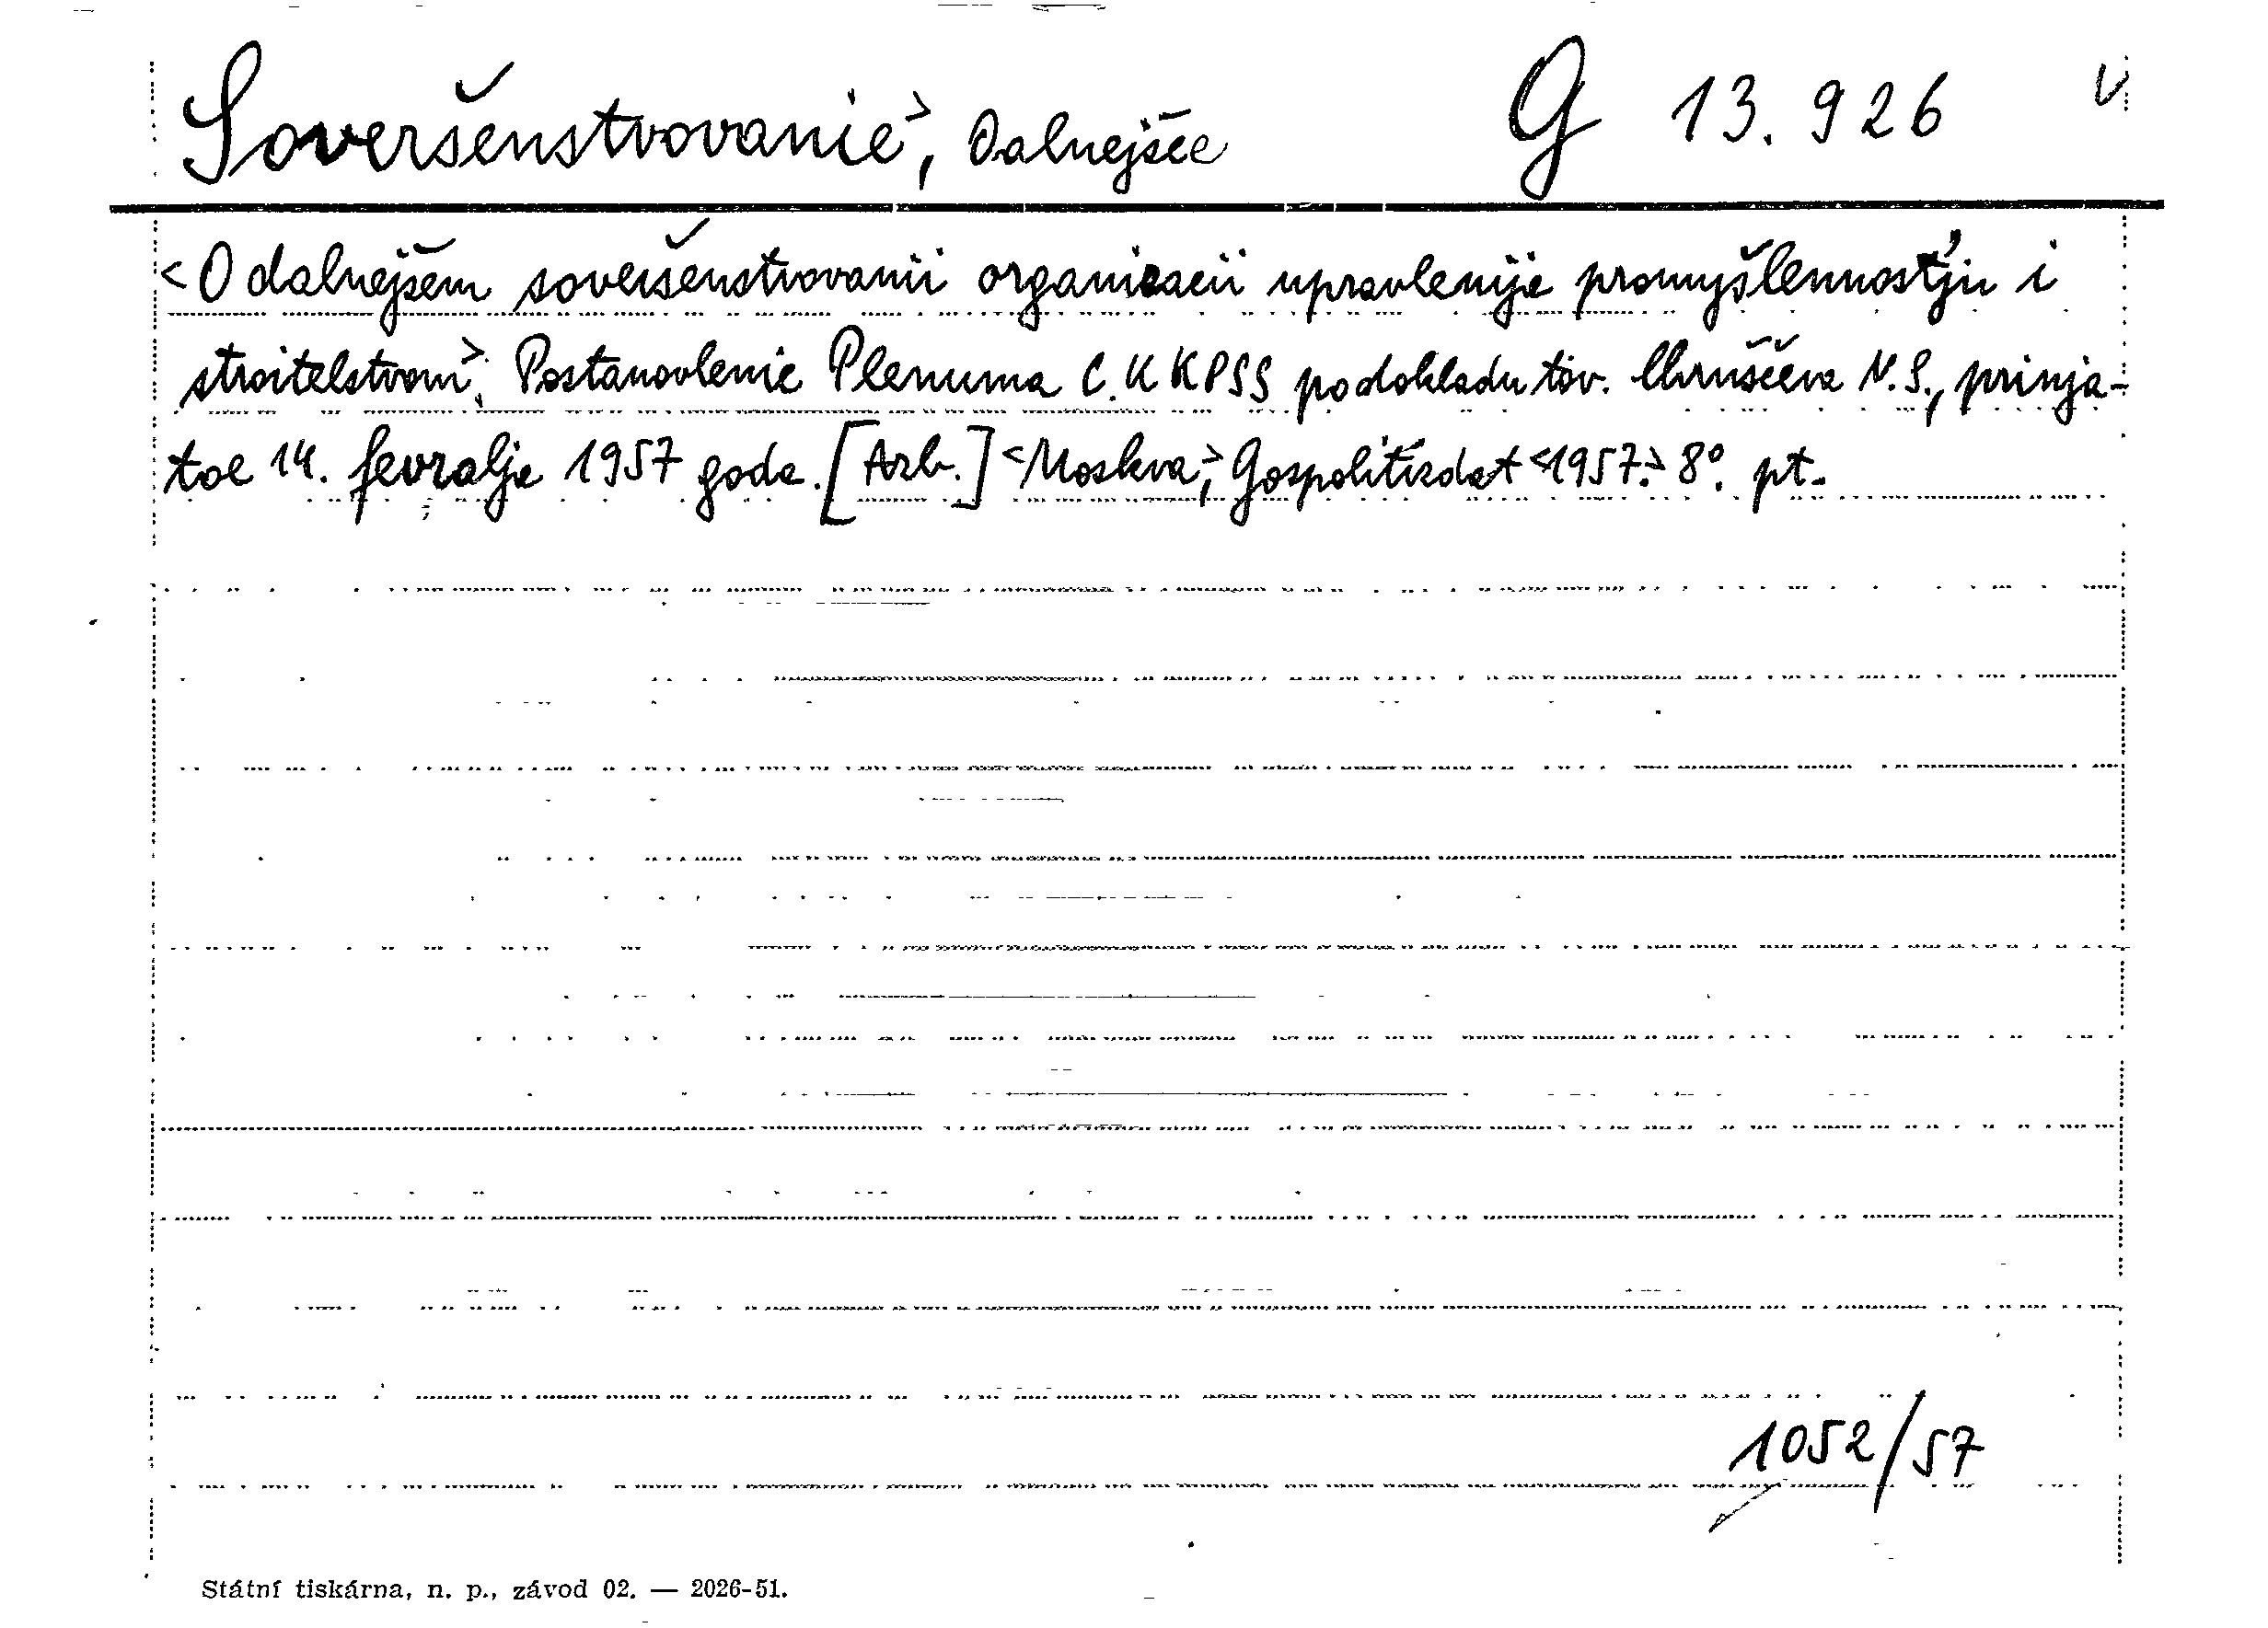 Soveršenstvovanie>, Dalnejšee G 13.926
<O dalnejšem soveršenstvovanii organizacii upravlenije promyšlennosťju i
stroitelstvom>. Postanovlenie Plenuma C.K KPSS po dokladu tov. Chruščeva N.S., prinja-
toe 14. fevralja 1957 goda. [Azb.] <Moskva,> Gospolitizdat <1957.> 8°. pt.
1052/57
Státní tiskárna, n. p., závod 02. — 2026-51.